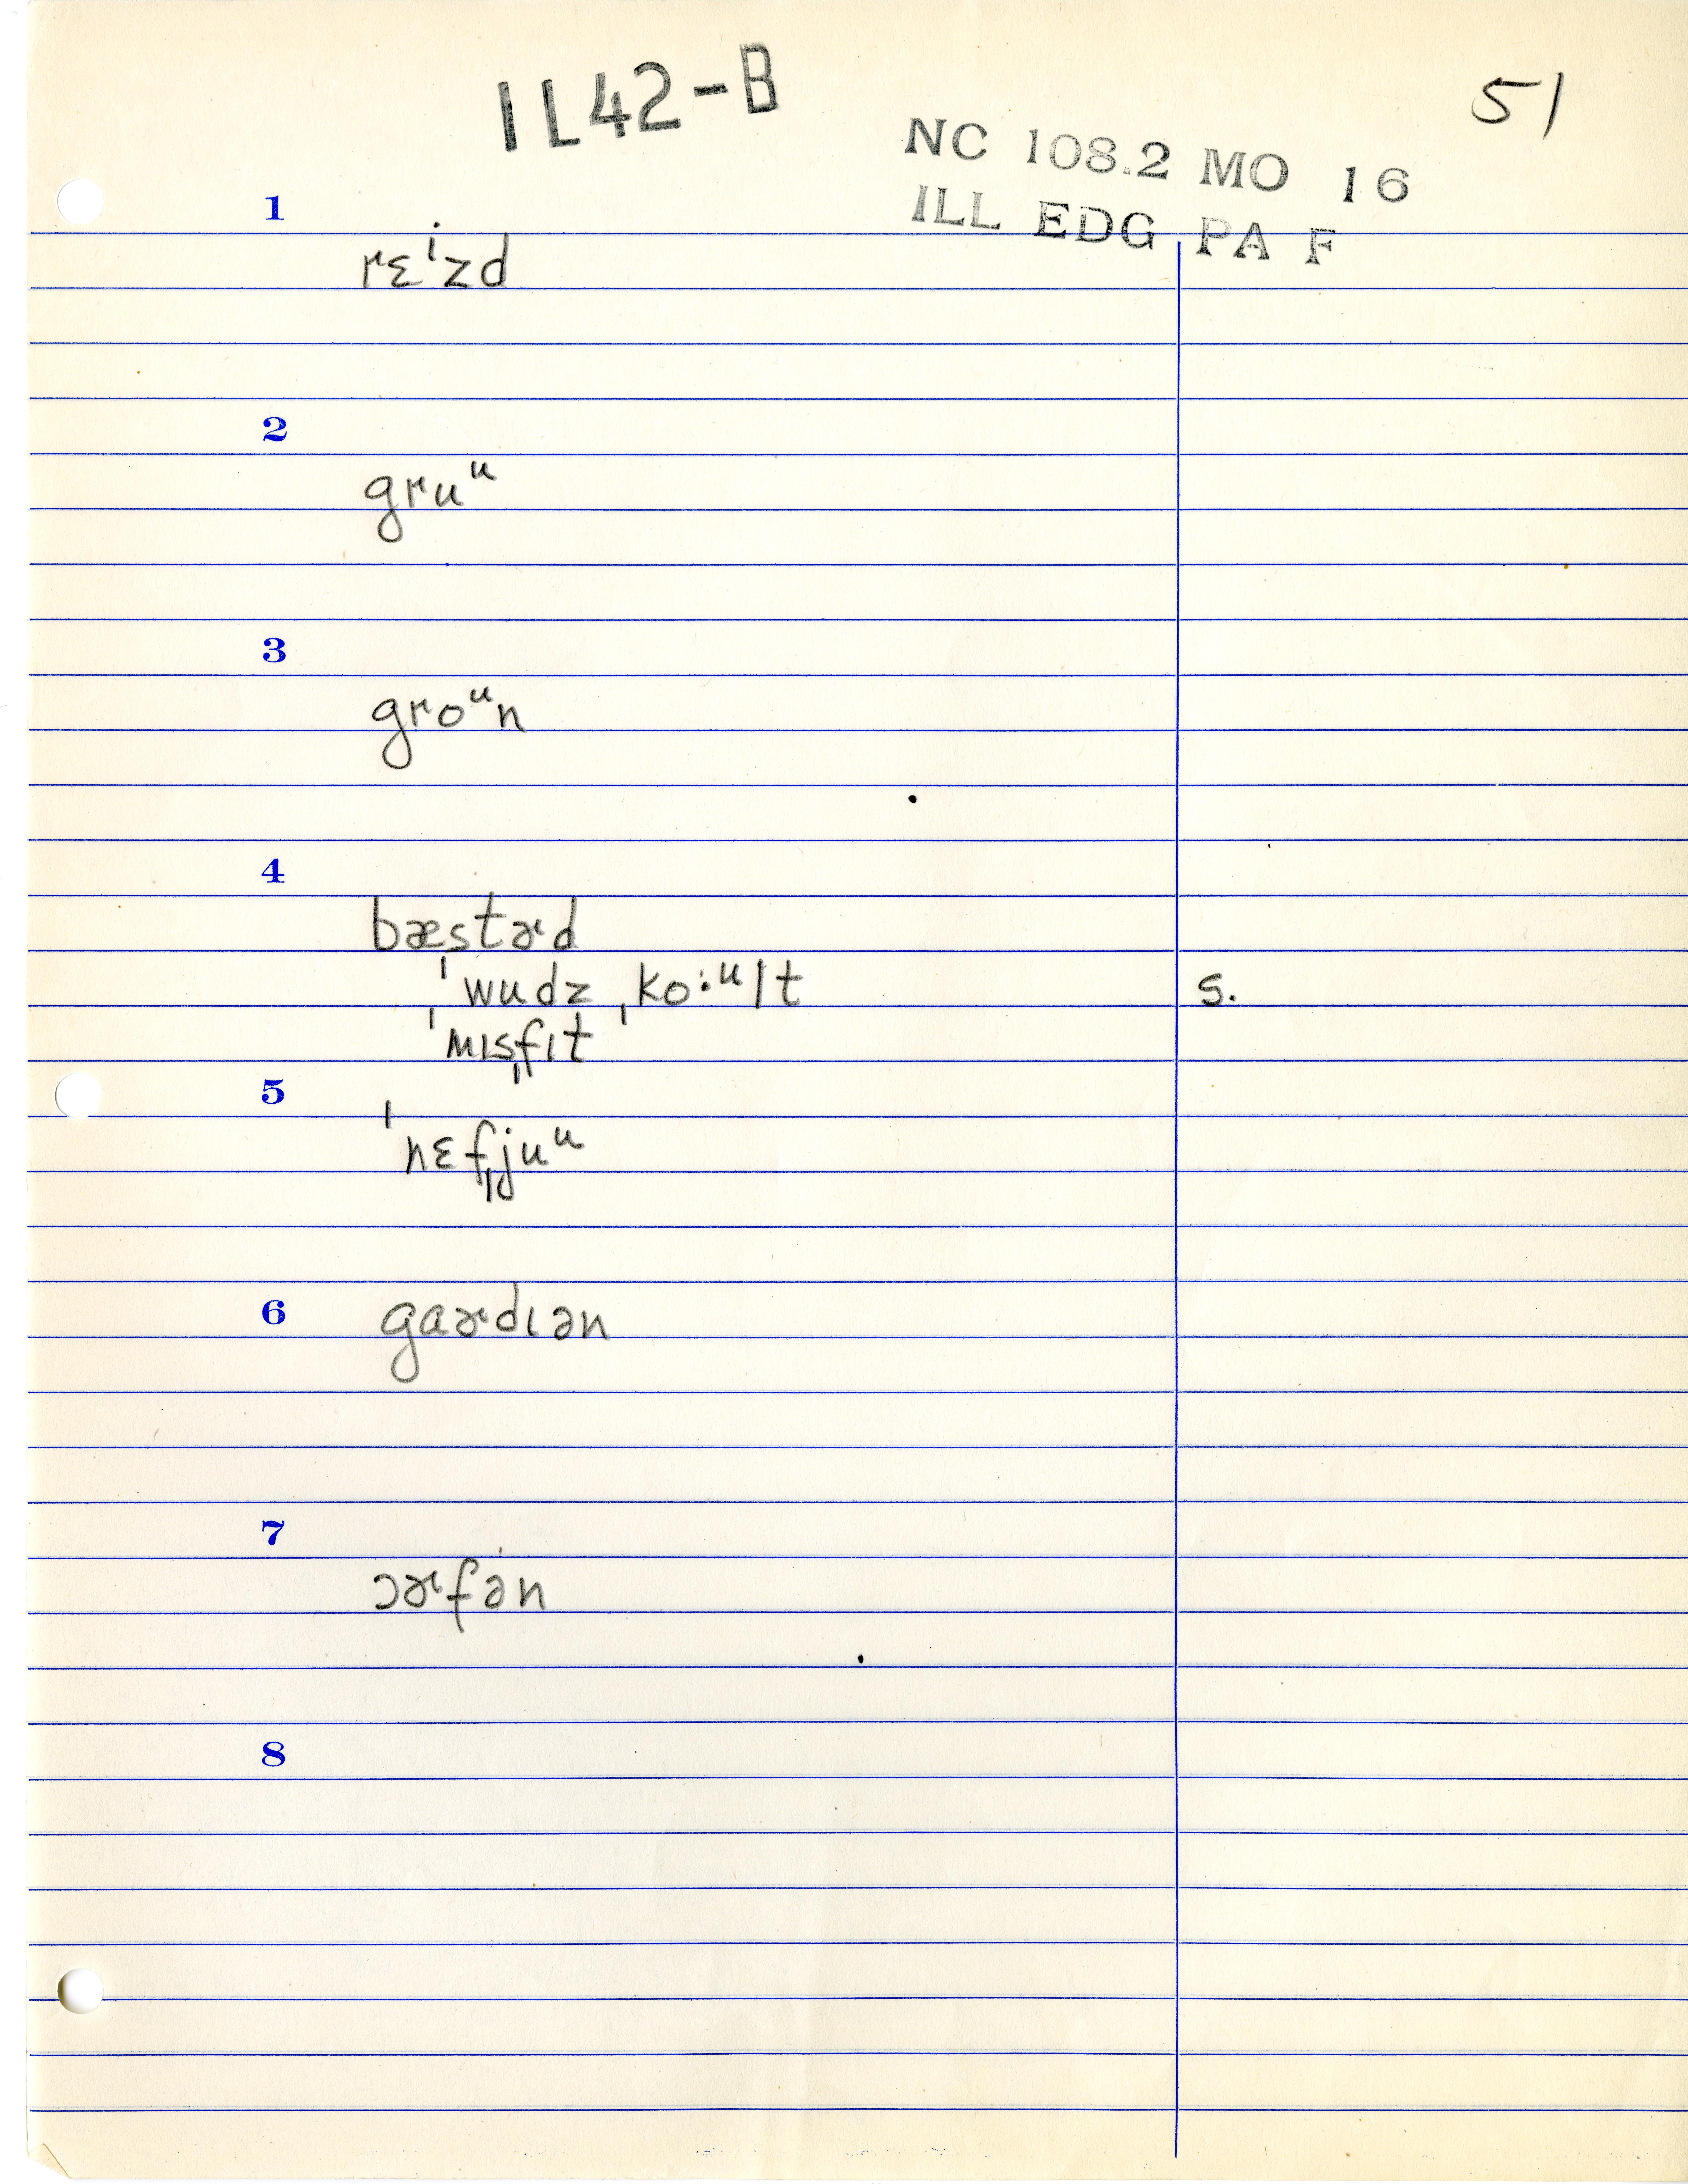 IL42-B
51
NC 108.2 MO 16
ILL EDG PA F
1
rɛⁱzd
2
gruᵘ
3
groᵘn
4
bæstɚd
ˈwudzˌko:ᵘlt s.
ˈmɪsˌfɪt
5
ˈnɛfˌjuᵘ
6 gaɚdɪən
7
ɔɚfən
8